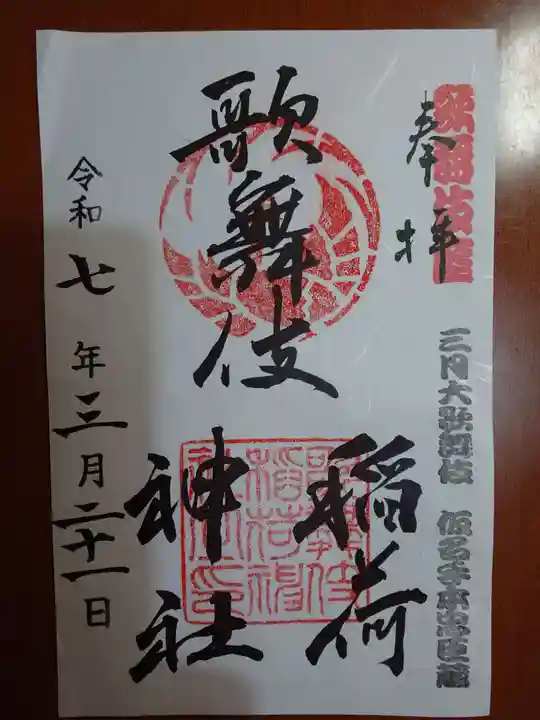 歌舞伎座
奉拝
三月大歌舞伎 仮名手本忠臣蔵
歌舞伎
稲荷
神社
歌舞伎
稲荷神
社之印
令和七年三月二十一日